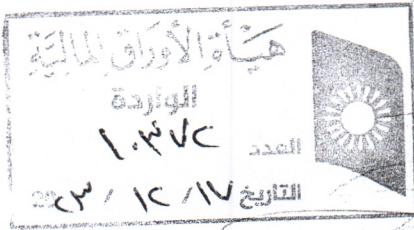 هيأة الأوراق المالية
الواردة
العدد ١٠٣٧٢
التاريخ ١٧ / ١٢ / ٢٣ 20